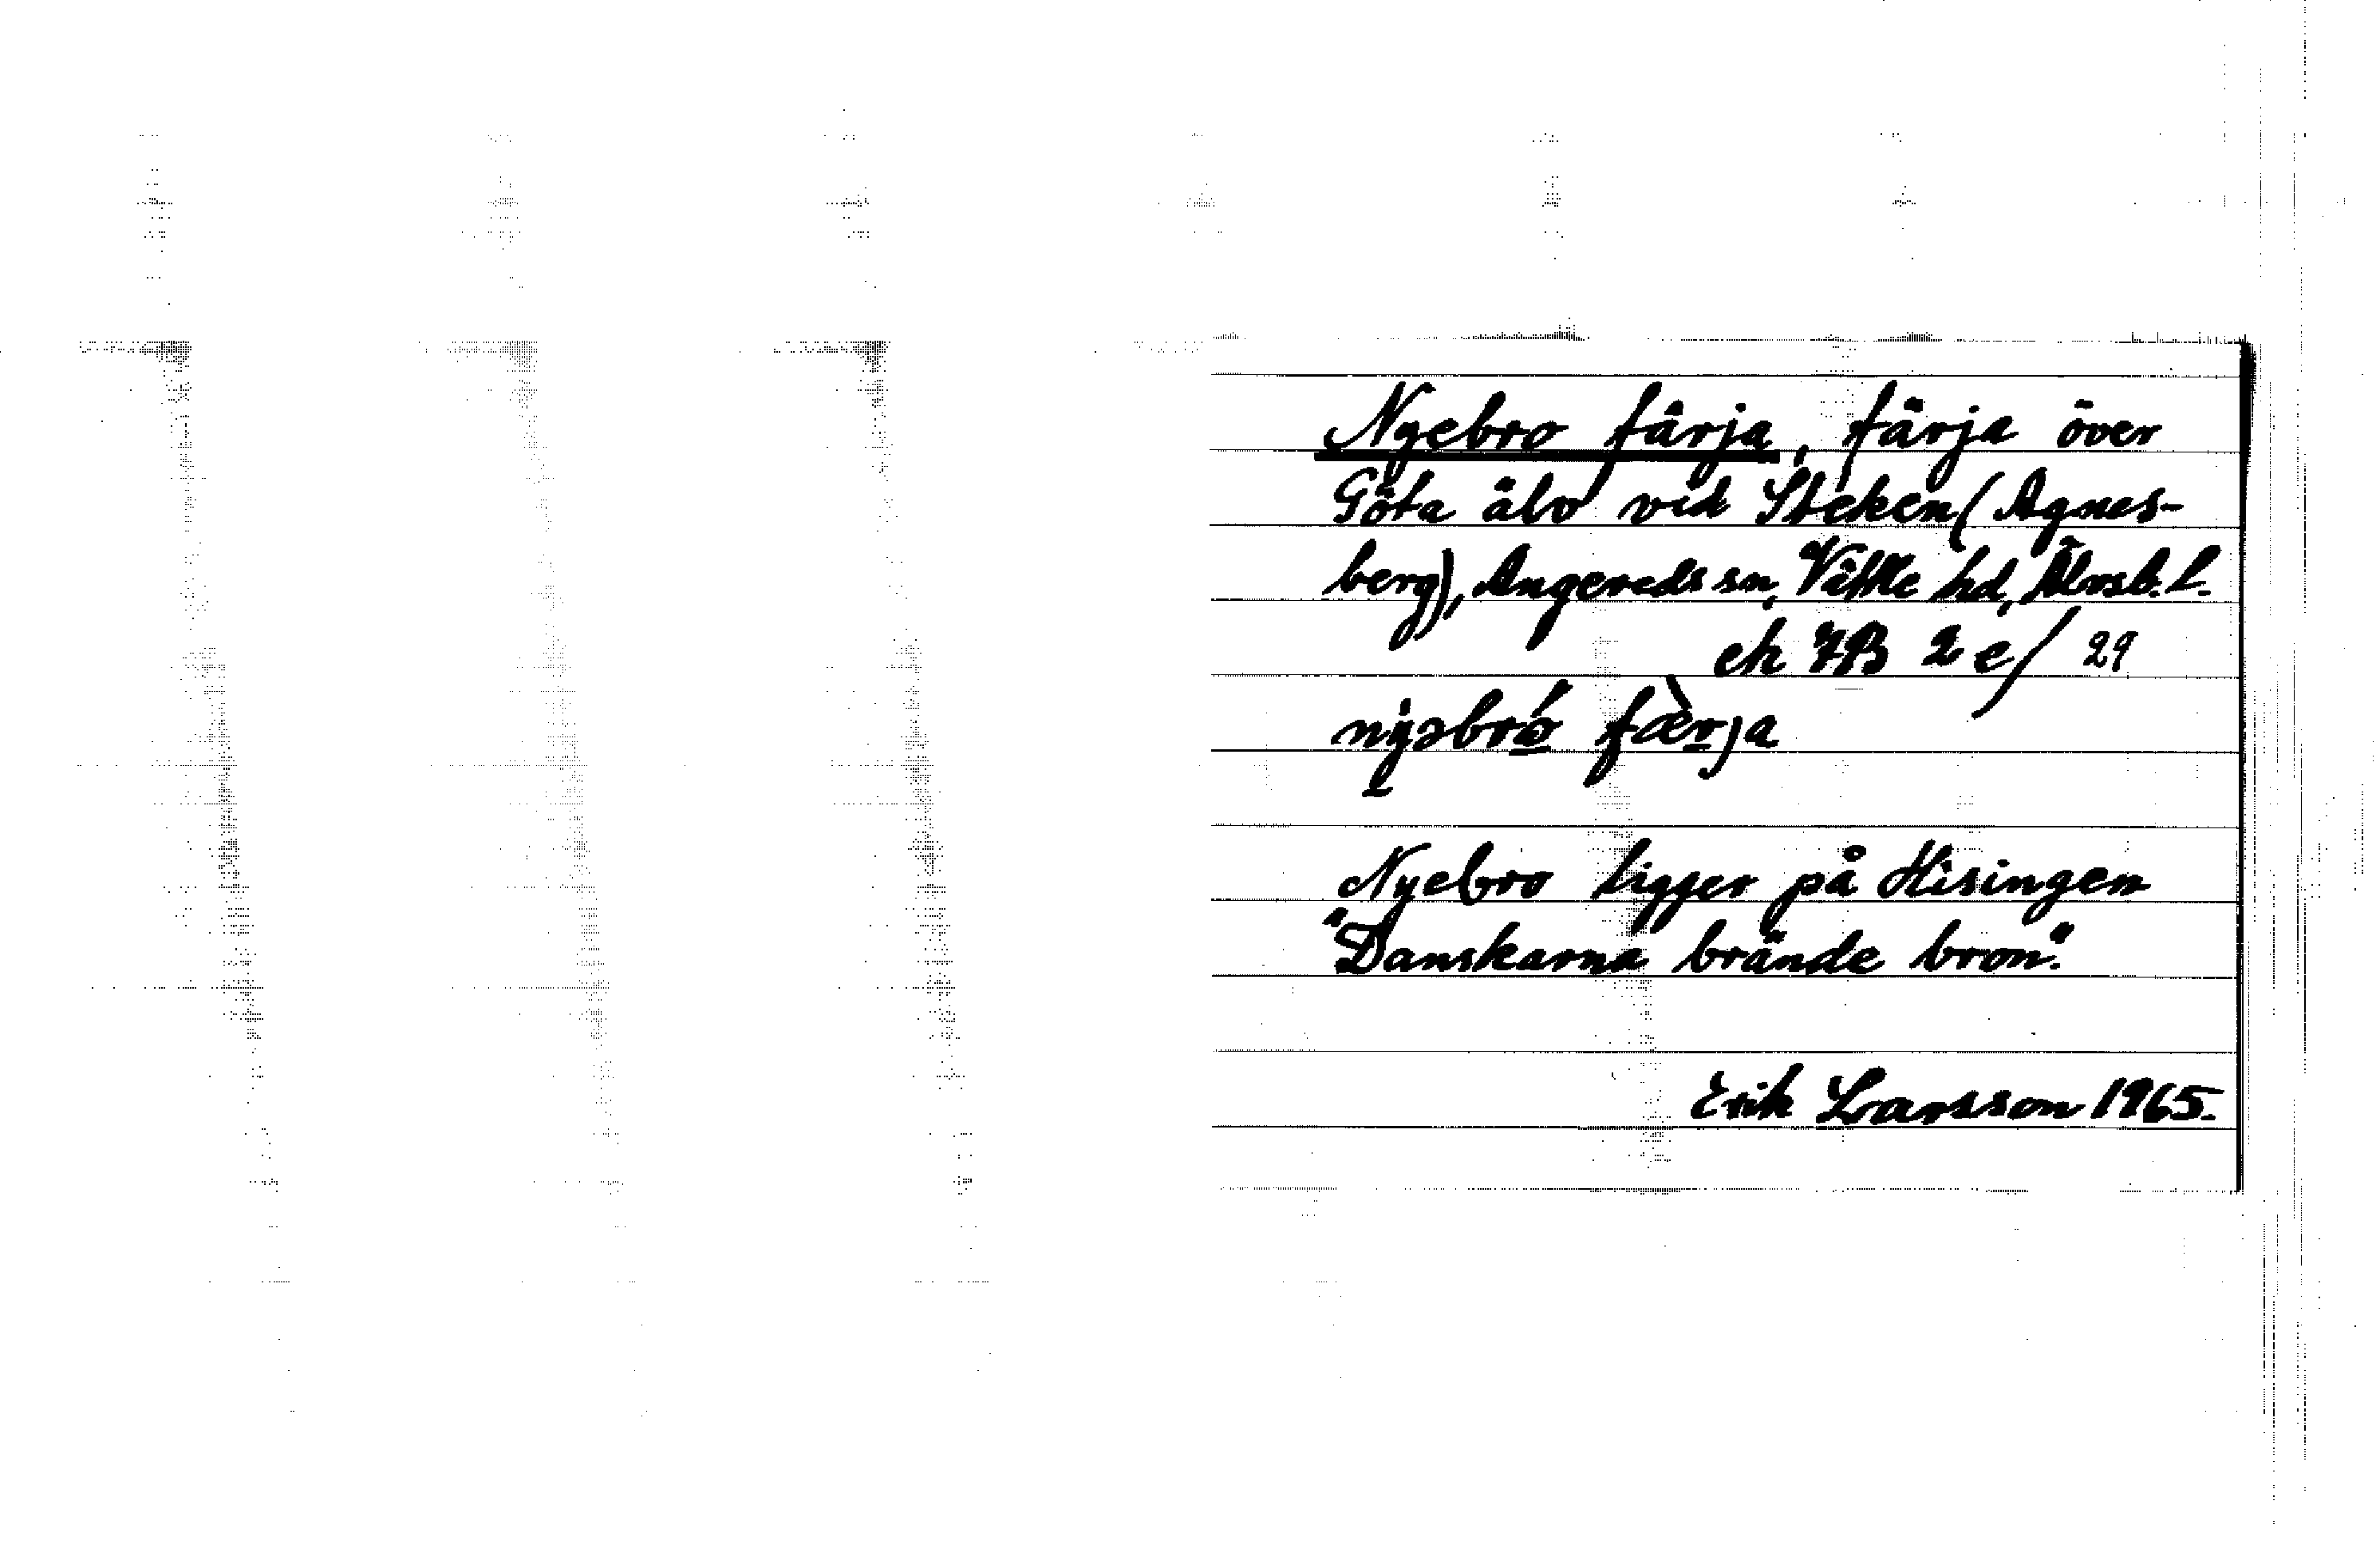 Nyebro färja, färja över
Göta älv vid Steken (Agnes-
berg), Angereds sn, Vättle hd, Älvsb. l.
ek 7B 2 e/ 29
nýəbró fæ̀rja
Nyebro ligger på Hisingen
"Danskarna brände bron".
Erik Larsson 1965.